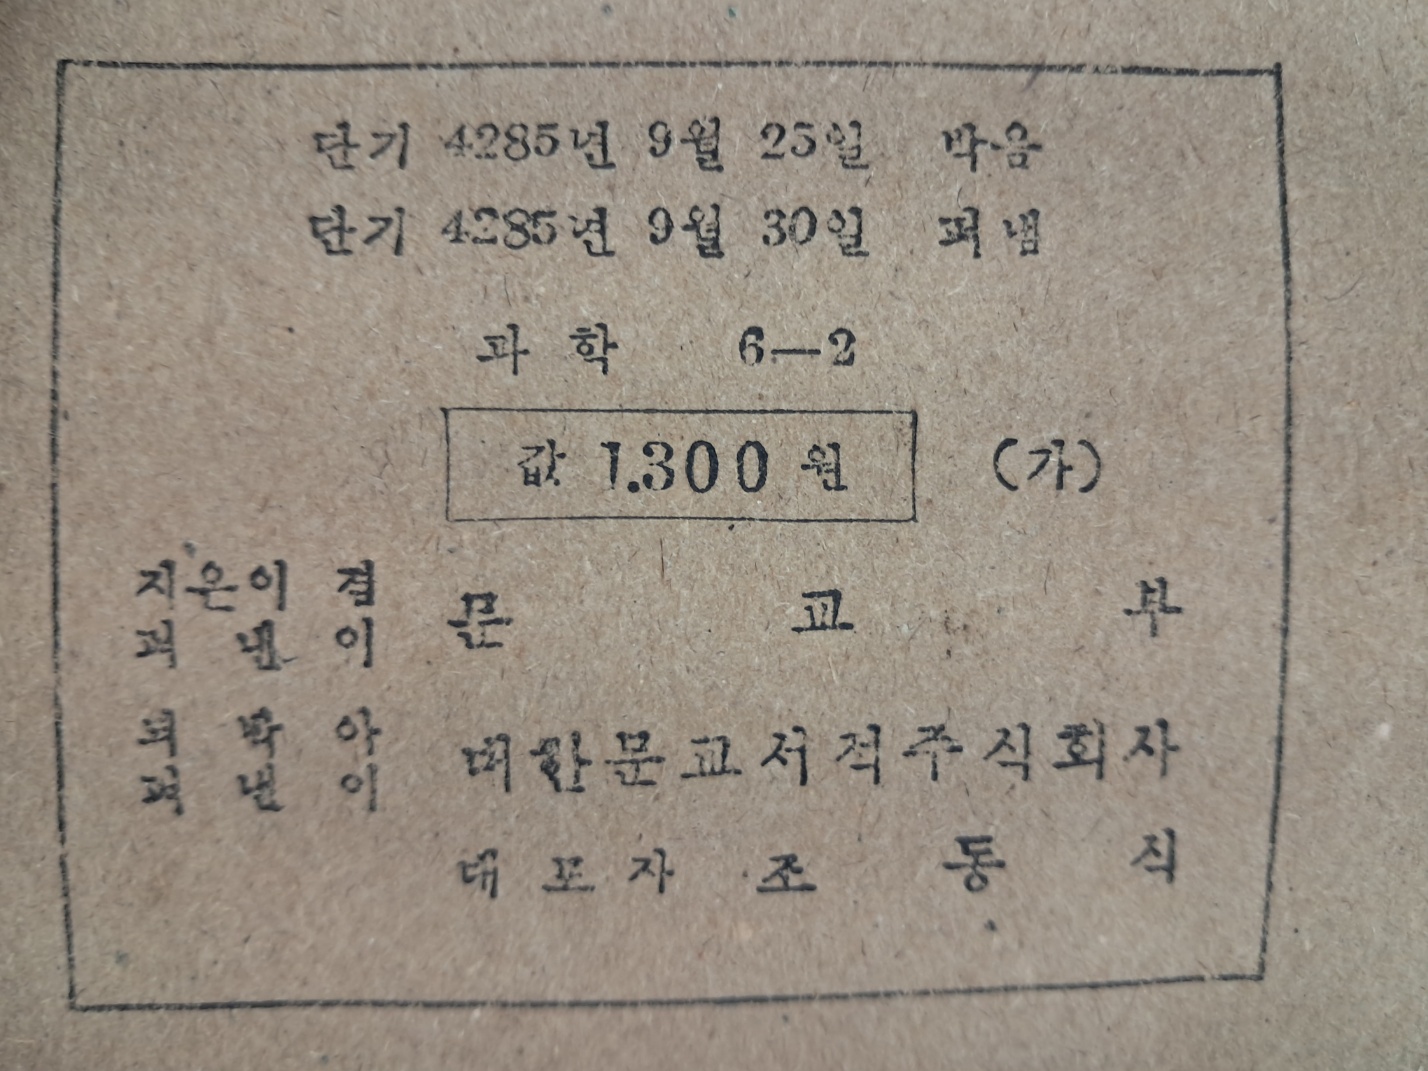 단기 4285년 9월 25일 박음
단기 4285년 9월 30일 펴냄
과학 6—2
값 1.300 원 (가)
지은이 겸
펴낸이 문교부
박아
펴낸이 대한문교서적주식회사
대표자 조동식